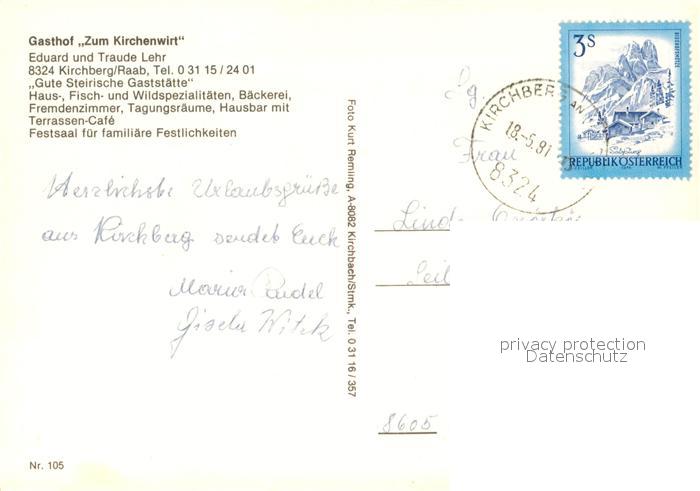 Gasthof „Zum Kirchenwirt"
Eduard und Traude Lehr
8324 Kirchberg/Raab, Tel. 0 31 15 / 24 01
„Gute Steirische Gaststätte"
Haus-, Fisch- und Wildspezialitäten, Bäckerei,
Fremdenzimmer, Tagungsräume, Hausbar mit
Terrassen-Café
Festsaal für familiäre Festlichkeiten
Herzlichste Urlaubsgrüße
aus Kirchberg sendet Euch
Maria
Gisela
Nr. 105
Foto Kurt Remling, A-8082 Kirchbach/Stmk., Tel. 0 31 16 / 357
3S
REPUBLIK ÖSTERREICH
KIRCHBERG AN
18.-5.81
8324
Sg.
Frau
8605
privacy protection
Datenschutz